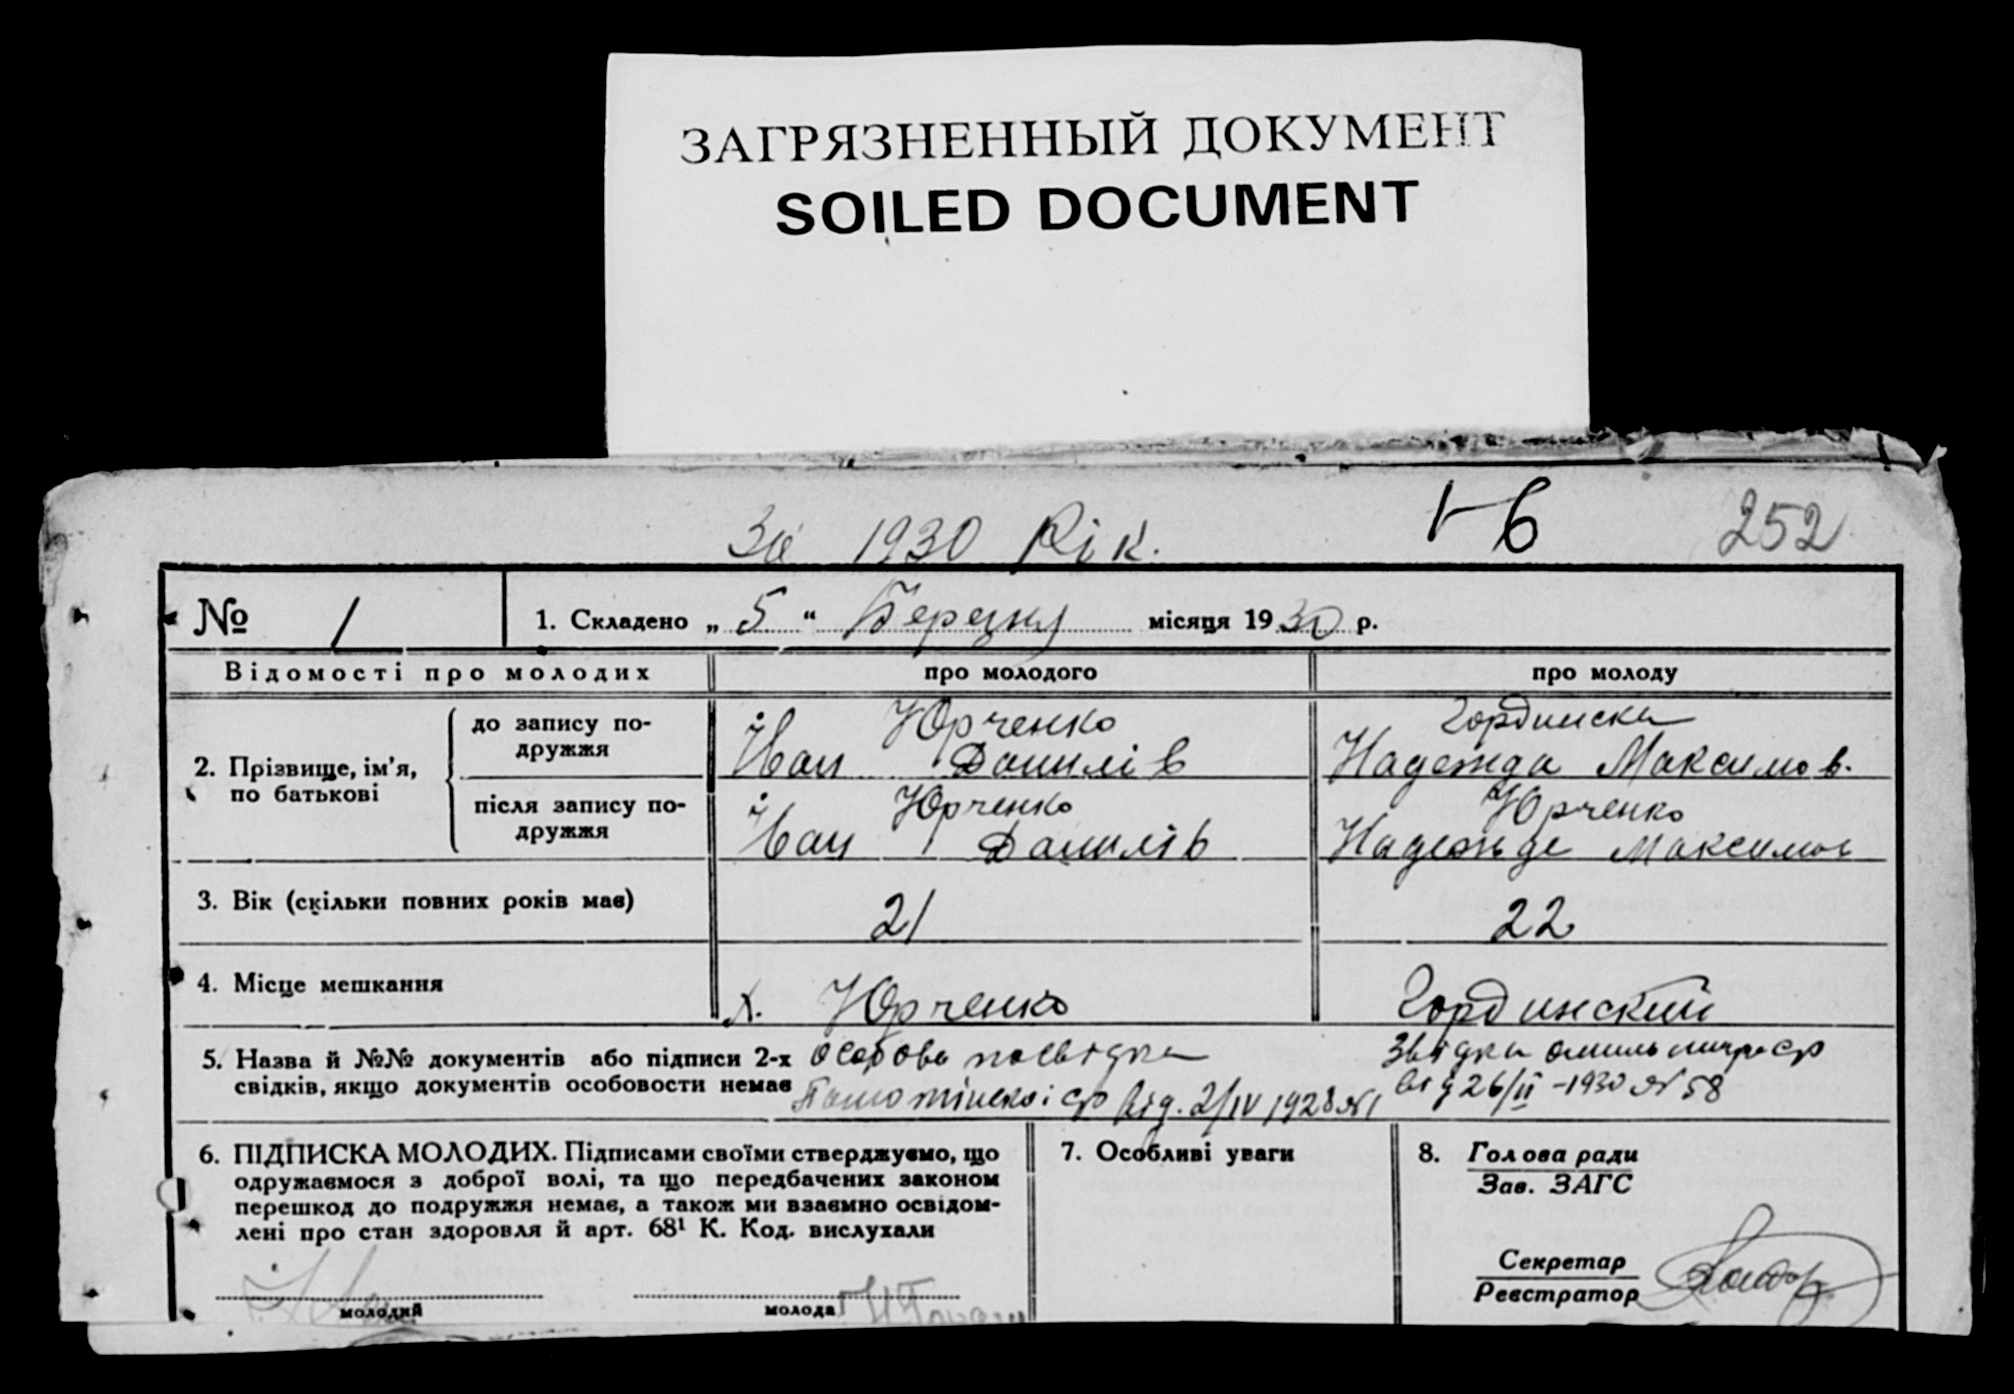 ЗАГРЯЗНЕННЫЙ ДОКУМЕНТ
SOILED DOCUMENT
За 1930 Рік. 1-6 252
№ 1 1. Складено „ 5 “ Березня місяця 1930 р.
Відомості про молодих про молодого про молоду
2. Прізвище, ім’я, по батькові
до запису по-
дружжя
Юрченко
Іван Данилів
Гординска
Надежда Максимов.
після запису по-
дружжя
Юрченко
Іван Данилів
Юрченко
Надежде Максимов
3. Вік (скільки повних років має) 21 22
4. Місце мешкання х. Юрченко Гординский
5. Назва й №№ документів або підписи 2-х
свідків, якщо документів особовости немає
Особова посвідка
від. 2/IV 1928 № 1
Звідка
від 26/II -1930 № 58
6. ПІДПИСКА МОЛОДИХ. Підписами своїми стверджуємо, що
одружаємося з доброї волі, та що передбачених законом
перешкод до подружжя немає, а також ми взаємно освідом-
лені про стан здоровля й арт. 68¹ К. Код. вислухали
молодий молода
7. Особливі уваги
8. Голова ради
Зав. ЗАГС
Секретар
Реєстратор